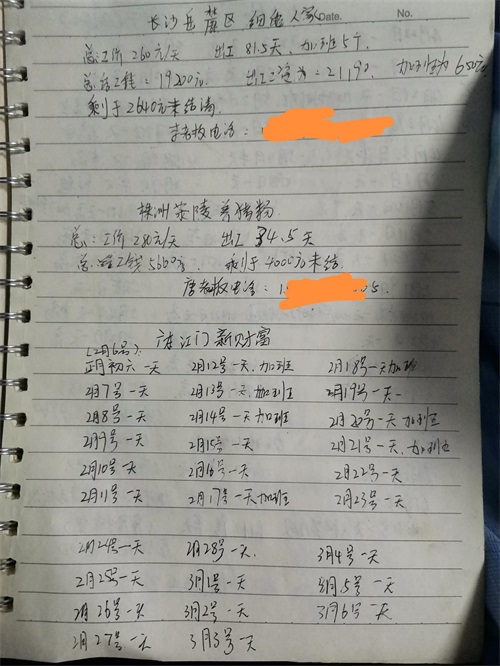 长沙岳麓区 细伍人家 Date. No.
总:工价260元/天 出工81.5天,加班5个
总层工程=19200元 出工三定为=21190 加班为650元
剩于2640元未结清
李老板电话:1
株洲茶陵养猪场
总:工价280元/天 出工34.5天
总层工钱5360元, 剩于4000元未结
唐老板电话:1 5.
广东江门新财富
(2月6号)
正月初六一天 2月12号一天,加班 2月18号一天加班
2月7号一天 2月13号一天,加班 2月19号一天
2月8号一天 2月14号一天加班 2月20号一天,加班
2月9号一天 2月15号一天 2月21号一天,加班
2月10号一天 2月16号一天 2月22号一天
2月11号一天 2月17号一天加班 2月23号一天
2月24号一天 2月28号一天, 3月4号一天
2月25号一天 3月1号一天 3月5号一天
2月26号一天 3月2号一天 3月6号一天
2月27号一天 3月3号一天